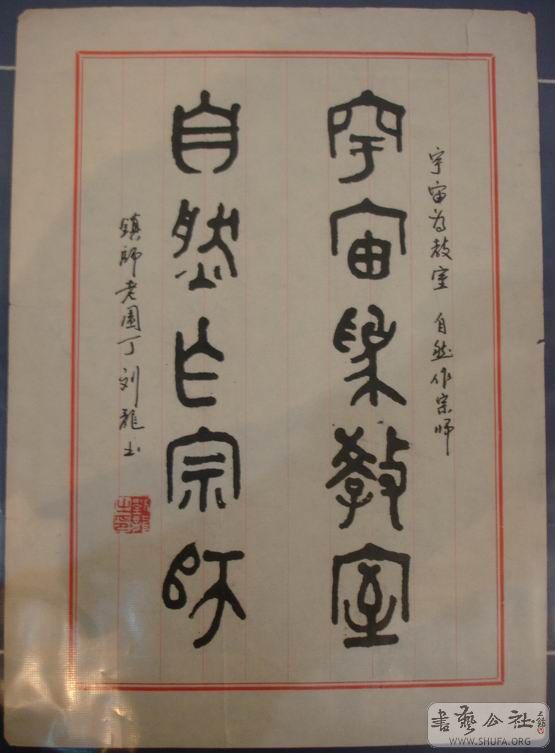 宇宙为教室 自然作宗师
宇宙爲教室
自然乍宗師
鎮师老園丁刘龍书
書藝公社
WWW.SHUFA.ORG